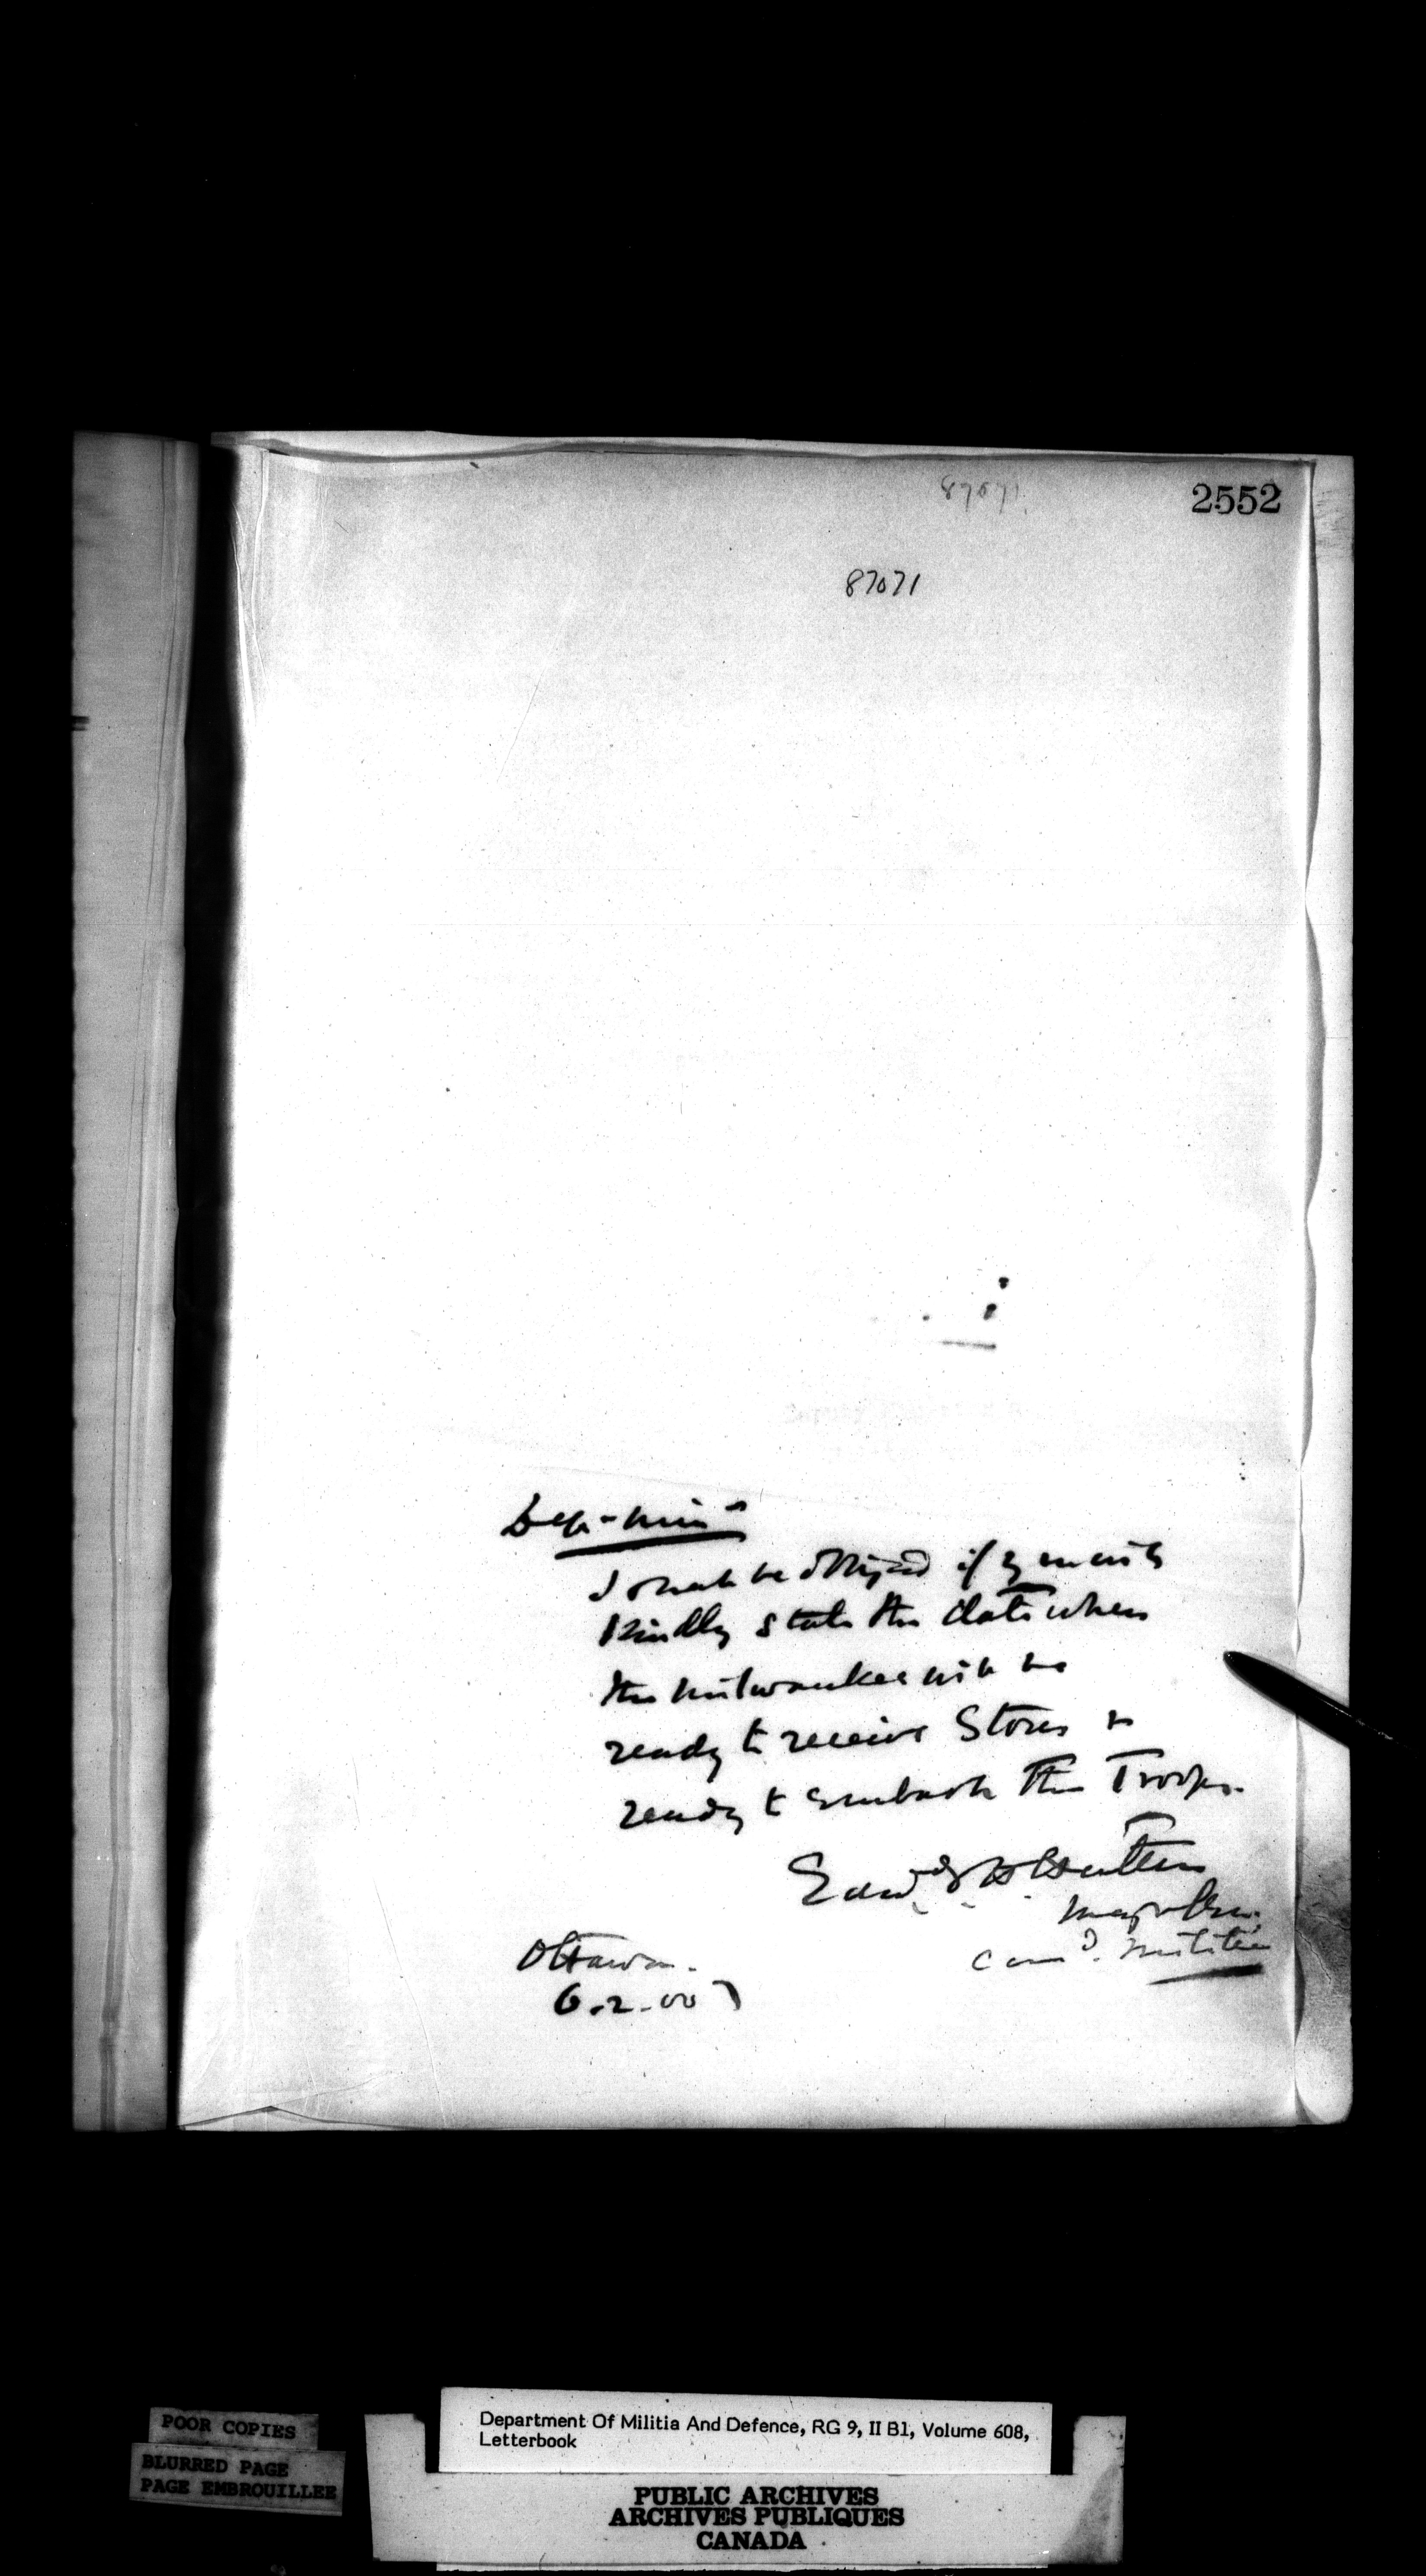 87071
2552
87071
Dep-Minr
I shall be obliged if you will
kindly state the date when
the Milwaukee will be
ready to receive Stores &
ready to embark the Troops.
Edwd H Hutton
Major Genl.
Comd. Militia
Ottawa.
6.2.00
POOR COPIES
BLURRED PAGE
PAGE EMBROUILLEE
Department Of Militia And Defence, RG 9, II B1, Volume 608,
Letterbook
PUBLIC ARCHIVES
ARCHIVES PUBLIQUES
CANADA